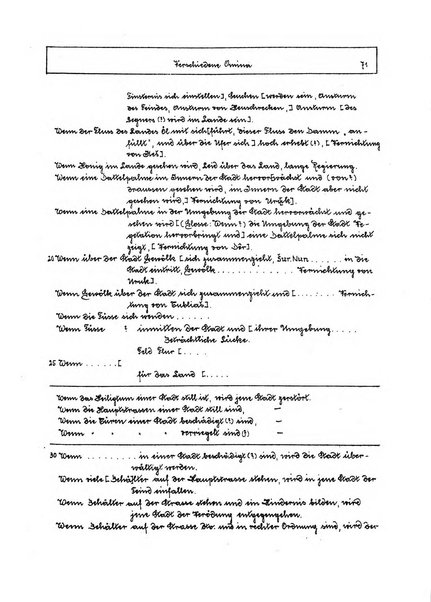 Verschiedene Omina 71
Finsternis sich einstellen], Seuchen [werden sein, Ansturm
des Feindes, Ansturm von Heuschrecken,] Ansturm [des
Gegners (?) wird im Lande sein].
Wenn der Fluss des Landes Öl mit sich[führt, dieser Fluss den Damm, an-
füllt', und über die Ufer sich] hoch erhebt (?), [Vernichtung
von
Wenn Honig im Lande gesehen wird, Leid über das Land, lange Regierung.
Wenn eine Dattelpalme im Innern der Stadt hervorwächst und (von?)
draussen gesehen wird, im Innern der Stadt aber nicht
gesehen wird,] Vernichtung von Uruk].
Wenn eine Dattelpalme in der Umgebung der Stadt hervorwächst und ge-
sehen wird [(Glosse: Wenn?) die Umgebung der Stadt Ve-
getation hervorbringt und] eine Dattelpalme sich nicht
zeigt, [Vernichtung von Dêr].
20 Wenn über der Stadt Gewölk [sich zusammenzieht, Šur.Nun ..... in die
Stadt eintritt, Gewölk ............ Vernichtung von
Uruk].
Wenn Gewölk über der Stadt sich zusammenzieht und [....... Vernich-
tung von Tubliaš].
Wenn die Füsse sich wenden ......
Wenn Füsse ? inmitten der Stadt und [ihrer Umgebung .....
Beträchtliche Lücke.
Feld Flur [.....
25 Wenn ......[
für das Land [.....
Wenn das Heiligtum einer Stadt still ist, wird jene Stadt zerstört.
Wenn die Hauptstrassen einer Stadt still sind, –
Wenn die Türen einer Stadt beschädigt (?) sind, –
Wenn " " " " verriegelt sind (?) –
30 Wenn ........ in einer Stadt beschädigt (?) sind, wird die Stadt über-
wältigt werden.
Wenn viele [Behä]lter auf der Hauptstrasse stehen, wird in jene Stadt der
Feind einfallen.
Wenn Behälter auf der Strasse stehen und ein Hindernis bilden, wird
jene Stadt der Verödung entgegengehen.
Wenn Behälter auf der Strasse do. und in rechter Ordnung sind, wird der